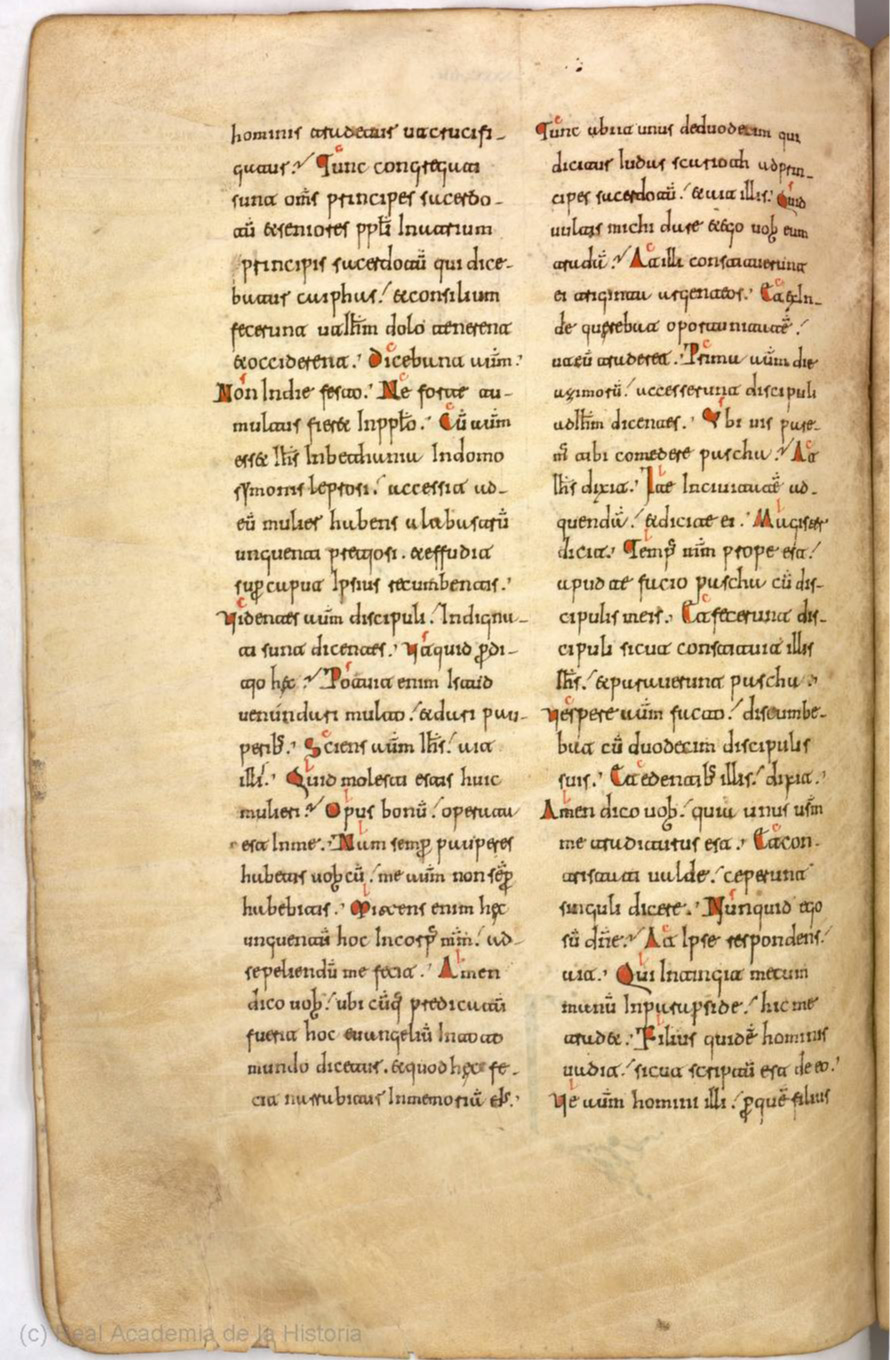 hominis tradetur ut crucifi-
gatur. Tunc congregati
sunt om̄s principes sacerdo-
tū et seniores ppłi In atrium
principis sacerdotū qui dice-
batur caiphas. et consilium
fecerunt ut Ih̄m dolo tenerent
et occiderent. Dicebant aūm.
Non In die festo. Ne forte tu-
multus fieret In ppło. Cū aūm
esset Ih̄s In bethania In domo
symonis leprosi. accessit ad-
eū mulier habens alabastrū
unguenti pretiosi. et effudit
sup̱ caput Ipsius recumbentis.
Videntes aūm discipuli. Indigna-
ti sunt dicentes. Ut quid p̱di-
tio hęc. Potuit enim Istud
venundari multo. et dari pau-
perib̄. Sciens aūm Ih̄s. ait
illi. Quid molesti estis huic
mulieri. Opus bonū operata
est In me. Nam semp̱ pauperes
habetis vob̄cū. me aūm non sēp̱
habebitis. Mittens enim hęc
unguentū hoc In corp̄ mm̄. ad-
sepeliendū me fecit. Amen
dico vob̄. ubicūq̄ predicatū
fuerit hoc euangeliū In toto
mundo dicetur. et quod hęc fe-
cit narrabitur In memoriā eīs.
Tunc abiit unus de duodecim qui
dicitur Iudas scarioth ad prin-
cipes sacerdotū. et ait illis. Quid
vultis michi dare et ego vob̄ eum
tradā. At illi constituerunt
ei triginta argenteos. Et exIn-
de querebat oportunitatē.
ut eū traderet. Prima aūm die
azimorū. accesserunt discipuli
ad Ih̄m dicentes. Ubi vis pare-
m̄ tibi comedere pascha. At
Ih̄s dixit. Ite In civitatē ad-
quendā. et dicite ei. Magister
dicit. Temp̄ mm̄ prope est.
apud te facio pascha cū dis-
cipulis meis. Et fecerunt dis-
cipuli sicut constituit illis
Ih̄s. et paraverunt pascha.
Vespere aūm facto. discumbe-
bat cū duodecim discipulis
suis. Et edentib̄ illis. dixit.
Amen dico vob̄. quia unus ūsm
me traditurus est. Et con-
tristati valde. ceperunt
singuli dicere. Nunquid ego
sū dn̄e. At Ipse respondens.
ait. Qui Intingit mecum
manū In parapside. hic me
tradet. Filius quidē hominis
vadit. sicut scriptū est de eo.
Ve aūm homini illi. p̱ quē filius